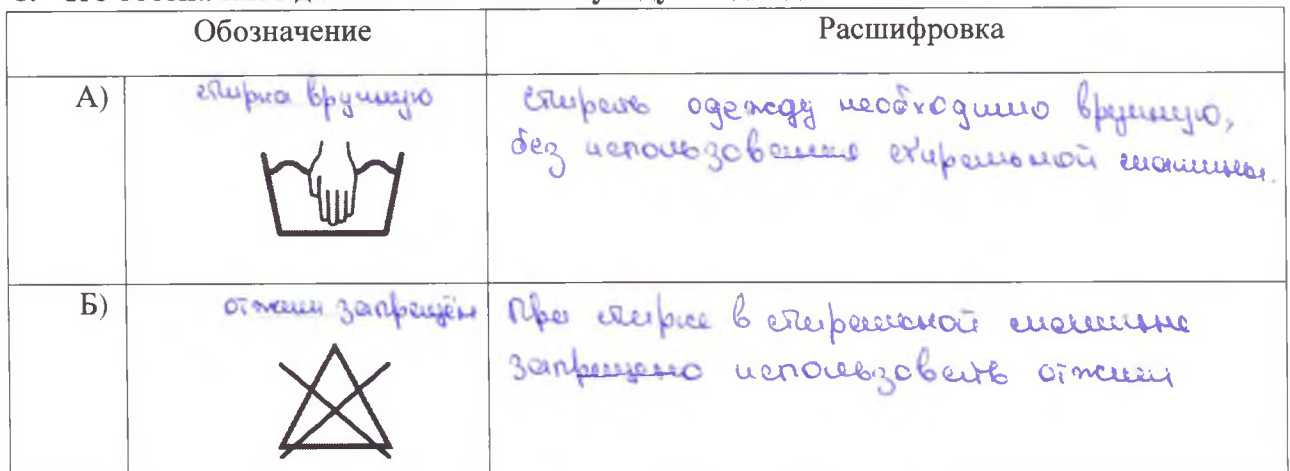 Обозначение
Расшифровка
А)
стирка вручную
стирать одежду необходимо вручную,
без использования стиральной машины.
Б)
отжим запрещён
При стирке в стиральной машине
запрещено использовать отжим